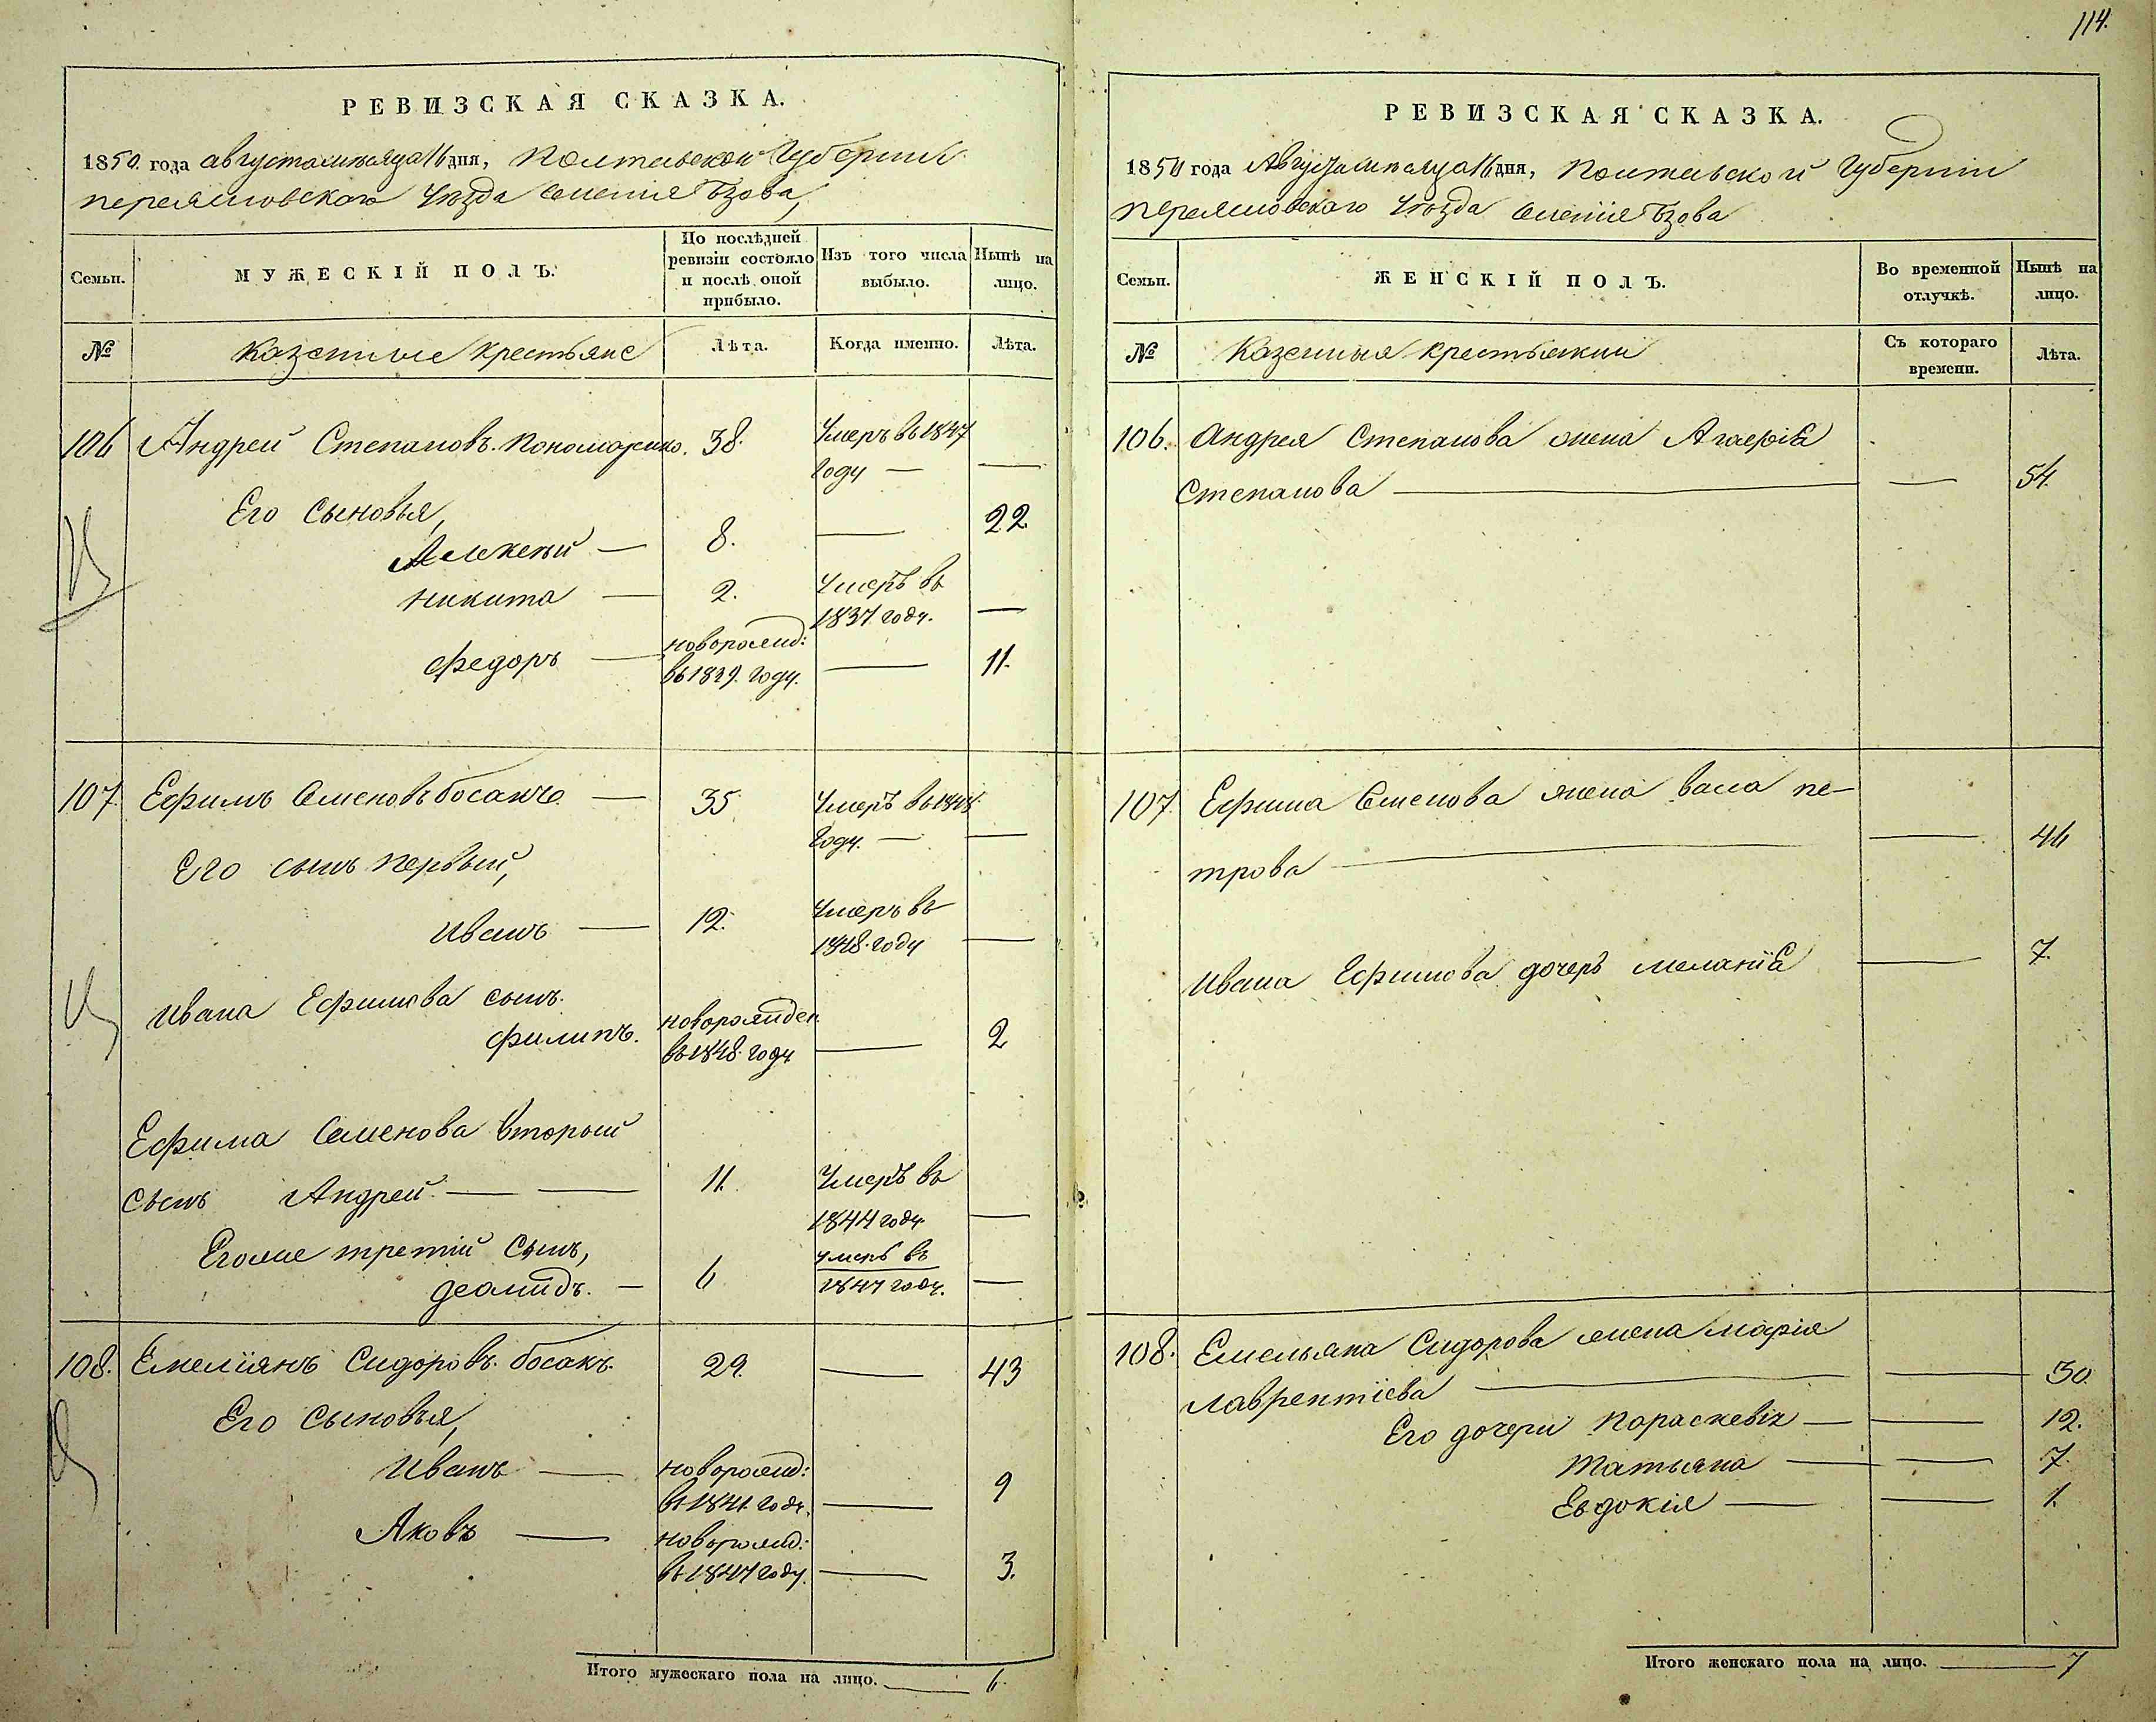 114.
РЕВИЗСКАЯ СКАЗКА.
1850 года августа мѣсяца 16 дня, Полтавской Губерніи
переяславскаго Уѣзда Селенія Бзова,
Семьи.
МУЖЕСКІЙ ПОЛЪ.
По послѣдней ревизіи состояло и послѣ оной прибыло.
Изъ того числа выбыло.
Нынѣ на лицо.
№
Казенные крестьяне
Лѣта.
Когда именно.
Лѣта.
106 Андрей Степановъ Пономаренко. 38. Умеръ въ 1847
году — —
Его Сыновья,
Алексѣй — 8. — 22.
Никита — 2. Умеръ въ
1837 году. —
Федоръ — новорожд:
въ 1839. году. — 11.
107. Ефимъ Семеновъ босакъ — 35 Умеръ въ 1848
году. — —
Его сынъ первый,
Иванъ — 12. Умеръ въ
1848. году —
Ивана Ефимова сынъ.
филипъ. новорожден
въ 1848. году — 2
Ефима Семенова второй
сынъ Андрей — — 11. Умеръ въ
1844 году —
Егоже третій Сынъ,
Деомидъ. — 6 умеръ въ
1847 году. —
108. Емеліянъ Сидоровъ босакъ. 29. — 43
Его Сыновья,
Иванъ — новорожд:
въ 1841. году. — 9
Яковъ — новорожд:
въ 1847 году. — 3.
Итого мужескаго пола на лицо. — 6.
РЕВИЗСКАЯ СКАЗКА.
1850 года Августа мѣсяца 16 дня, Полтавской Губерніи
переяславскаго Уѣзда Селенія Бзова
Семьи.
ЖЕНСКІЙ ПОЛЪ.
Во временной отлучкѣ.
Нынѣ на лицо.
№
Казенныя крестьянки
Съ котораго времени.
Лѣта.
106. Андрея Степанова жена Агафія
Степанова — — 54.
107. Ефима Семенова жена васа пе-
трова — — 46
Ивана Ефимова дочерь меланія — 7.
108. Емельяна Сидорова жена марія
Лаврентіева — — 30
Его дочери Параскевія — — 12.
Татьяна — — 7.
Евдокія — — 1.
Итого женскаго пола на лицо. — 7